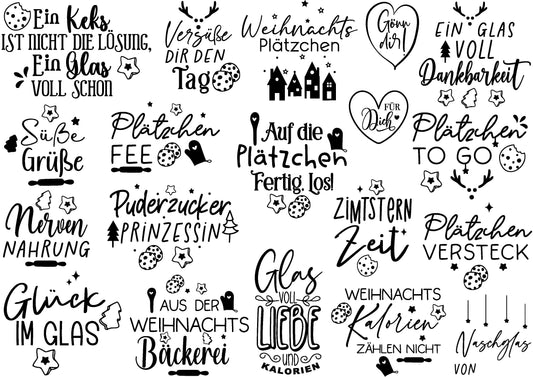 Ein Keks
IST NICHT DIE LÖSUNG,
Ein Glas
VOLL SCHON
Versüße
DIR DEN
Tag
Weihnachts
Plätzchen
Gönn
dir!
EIN GLAS
VOLL
Dankbarkeit
Süße
Grüße
Plätzchen
FEE
Auf die
Plätzchen
Fertig, Los!
FÜR
Dich
Plätzchen
TO GO
Nerven
NAHRUNG
Puderzucker
PRINZESSIN
ZIMTSTERN
Zeit
Plätzchen
VERSTECK
Glück
IM GLAS
AUS DER
WEIHNACHTS
Bäckerei
Glas
VOLL
LIEBE
und
KALORIEN
WEIHNACHTS
Kalorien
ZÄHLEN NICHT
Naschglas
VON